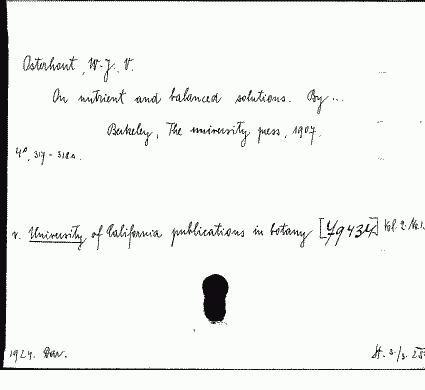 Osterhout, W. J. V.
On nutrient and balanced solutions. By ...
Berkeley, The university press, 1907.
4°, 317 - 318 s.
v. University of California publications in botany [79434] Vol. 2 No 1
1924. Dav.